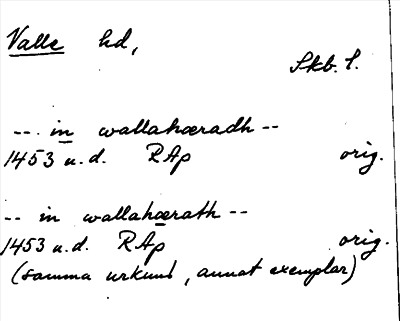 Valle hd,
Skb. l.
-- in wallahæradh --
1453 u.d. RAp orig.
-- in wallahærath --
1453 u.d. RAp orig.
(samma urkund, annat exemplar)